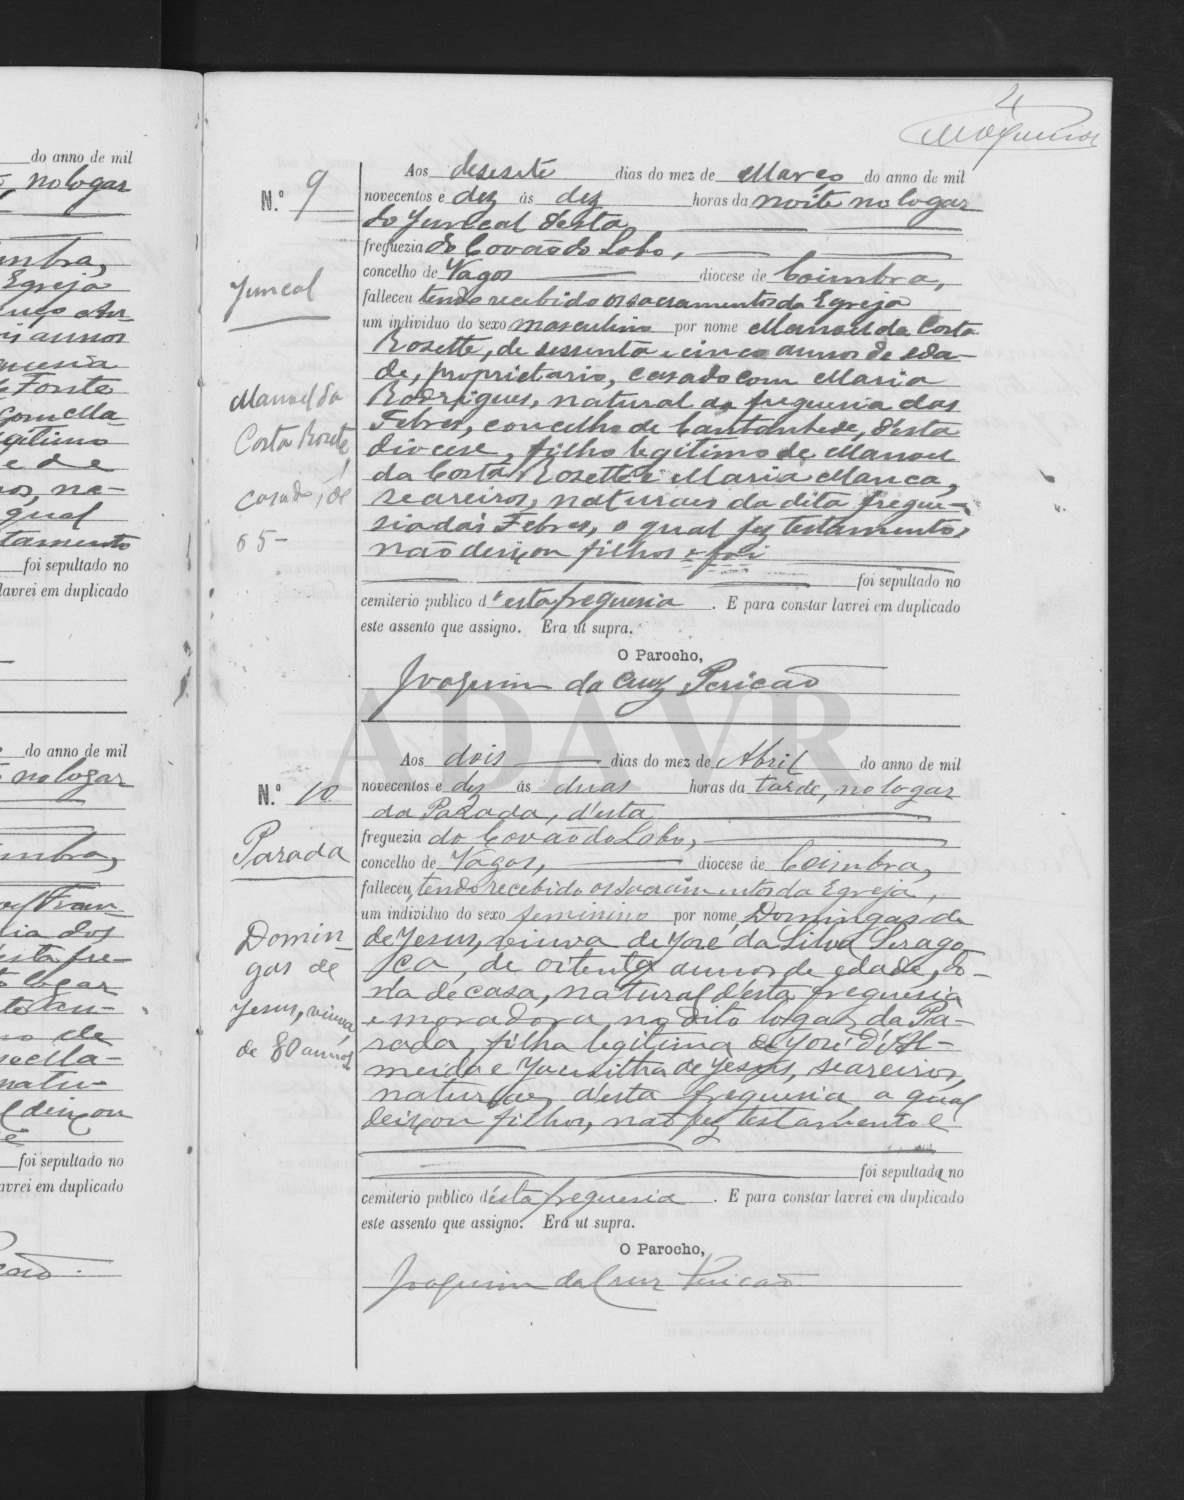 4
do anno de mil
no logar
mbra,
Egreja
annos
Fonte
com ella
gitimo
e de
qual
tamento
foi sepultado no
lavrei em duplicado
do anno de mil
no logar
mbra,
ta fre-
logar
de
natu-
deixou
foi sepultado no
avrei em duplicado
N.º 9
Juncal
Manoel da
Costa Rosette,
casado, de
65-
Aos desesete dias do mez de Março do anno de mil
novecentos e dez ás dez horas da noite no logar
do Juncal desta
freguezia do Covão do Lobo,
concelho de Vagos diocese de Coimbra,
falleceu tendo recebido os sacramentos da Egreja
um individuo do sexo masculino por nome Manoel da Costa
Rosette, de sessenta e cinco annos de eda-
de, proprietario, casado com Maria
Rodrigues, natural da freguesia das
Febres, concelho de Cantanhede, d'esta
diocese, filho legitimo de Manoel
da Costa Rosette e Maria Manca,
seareiros, naturaes da dita fregue-
sia das Febres, o qual fez testamento,
não deixou filhos e foi
foi sepultado no
cemiterio publico d'esta freguesia. E para constar lavrei em duplicado
este assento que assigno. Era ut supra.
O Parocho,
Joaquim da Cruz Pericão
ADAVR
N.º 10
Parada
Domin-
gas de
Jesus, viuva,
de 80 annos
Aos dois dias do mez de Abril do anno de mil
novecentos e dez ás duas horas da tarde, no logar
da Parada, d'esta
freguezia do Covão do Lobo,
concelho de Vagos, diocese de Coimbra,
falleceu, tendo recebido os sacramentos da Egreja,
um individuo do sexo feminino por nome Domingas de
de Jesus, viuva de José da Silva Serago-
ça, de oitenta annos de edade, do-
na de casa, natural d'esta freguesia
e moradora no dito logar da Pa-
rada, filha legitima de José d'Al-
meida e de Jesus, seareiros,
naturaes d'esta freguesia a qual
deixou filhos, não fez testamento e
foi sepultada no
cemiterio publico d'ésta freguesia. E para constar lavrei em duplicado
este assento que assigno. Era ut supra.
O Parocho,
Joaquim da Cruz Pericão